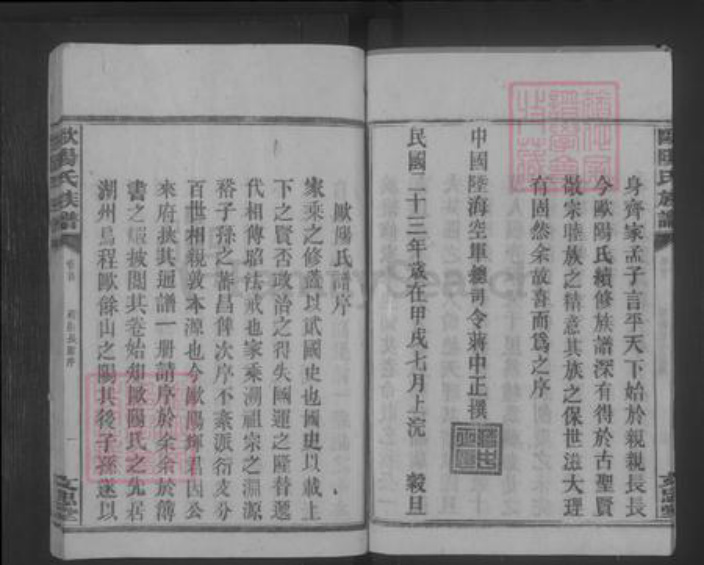 身齊家孟子言平天下始於親親長長
今歐陽氏續修族譜深有得於古聖賢
敬宗睦族之精意其族之保世滋大理
有固然余故喜而為之序
中國陸海空軍總司令蔣中正撰
民國二十三年歲在甲戌七月上浣 穀旦
歐陽氏族譜
歐陽氏譜序
家乘之修蓋以貳國史也國史以載上
下之賢否政治之得失國運之隆替遞
代相傳昭法戒也家乘溯祖宗之淵源
裕子孫之蕃昌俾次序不紊派衍支分
百世相親敦本源也今歐陽輝君因公
來府挾其通譜一册請序於余余於簿
書之暇披閱其卷始知歐陽氏之先居
湖州烏程歐餘山之陽其後子孫遂以
歐陽氏族譜
卷首
一
文忠堂